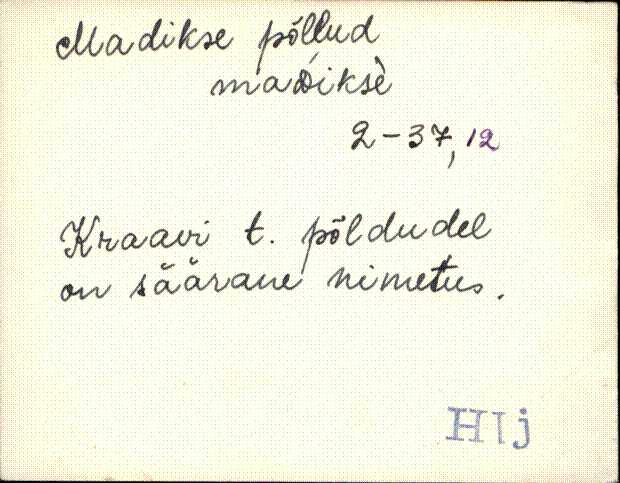 Madikse põllud
maDiksè
2-37,12
Kraavi t. põldudel
on säärane nimetus.
Hlj